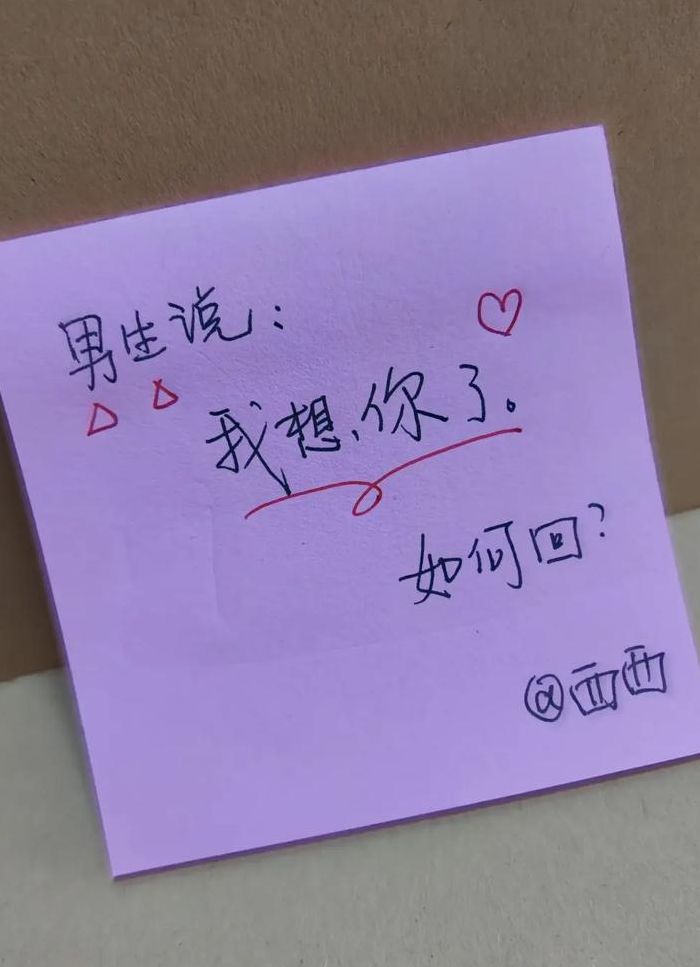 男生说：
我想你了。
如何回？
@西西